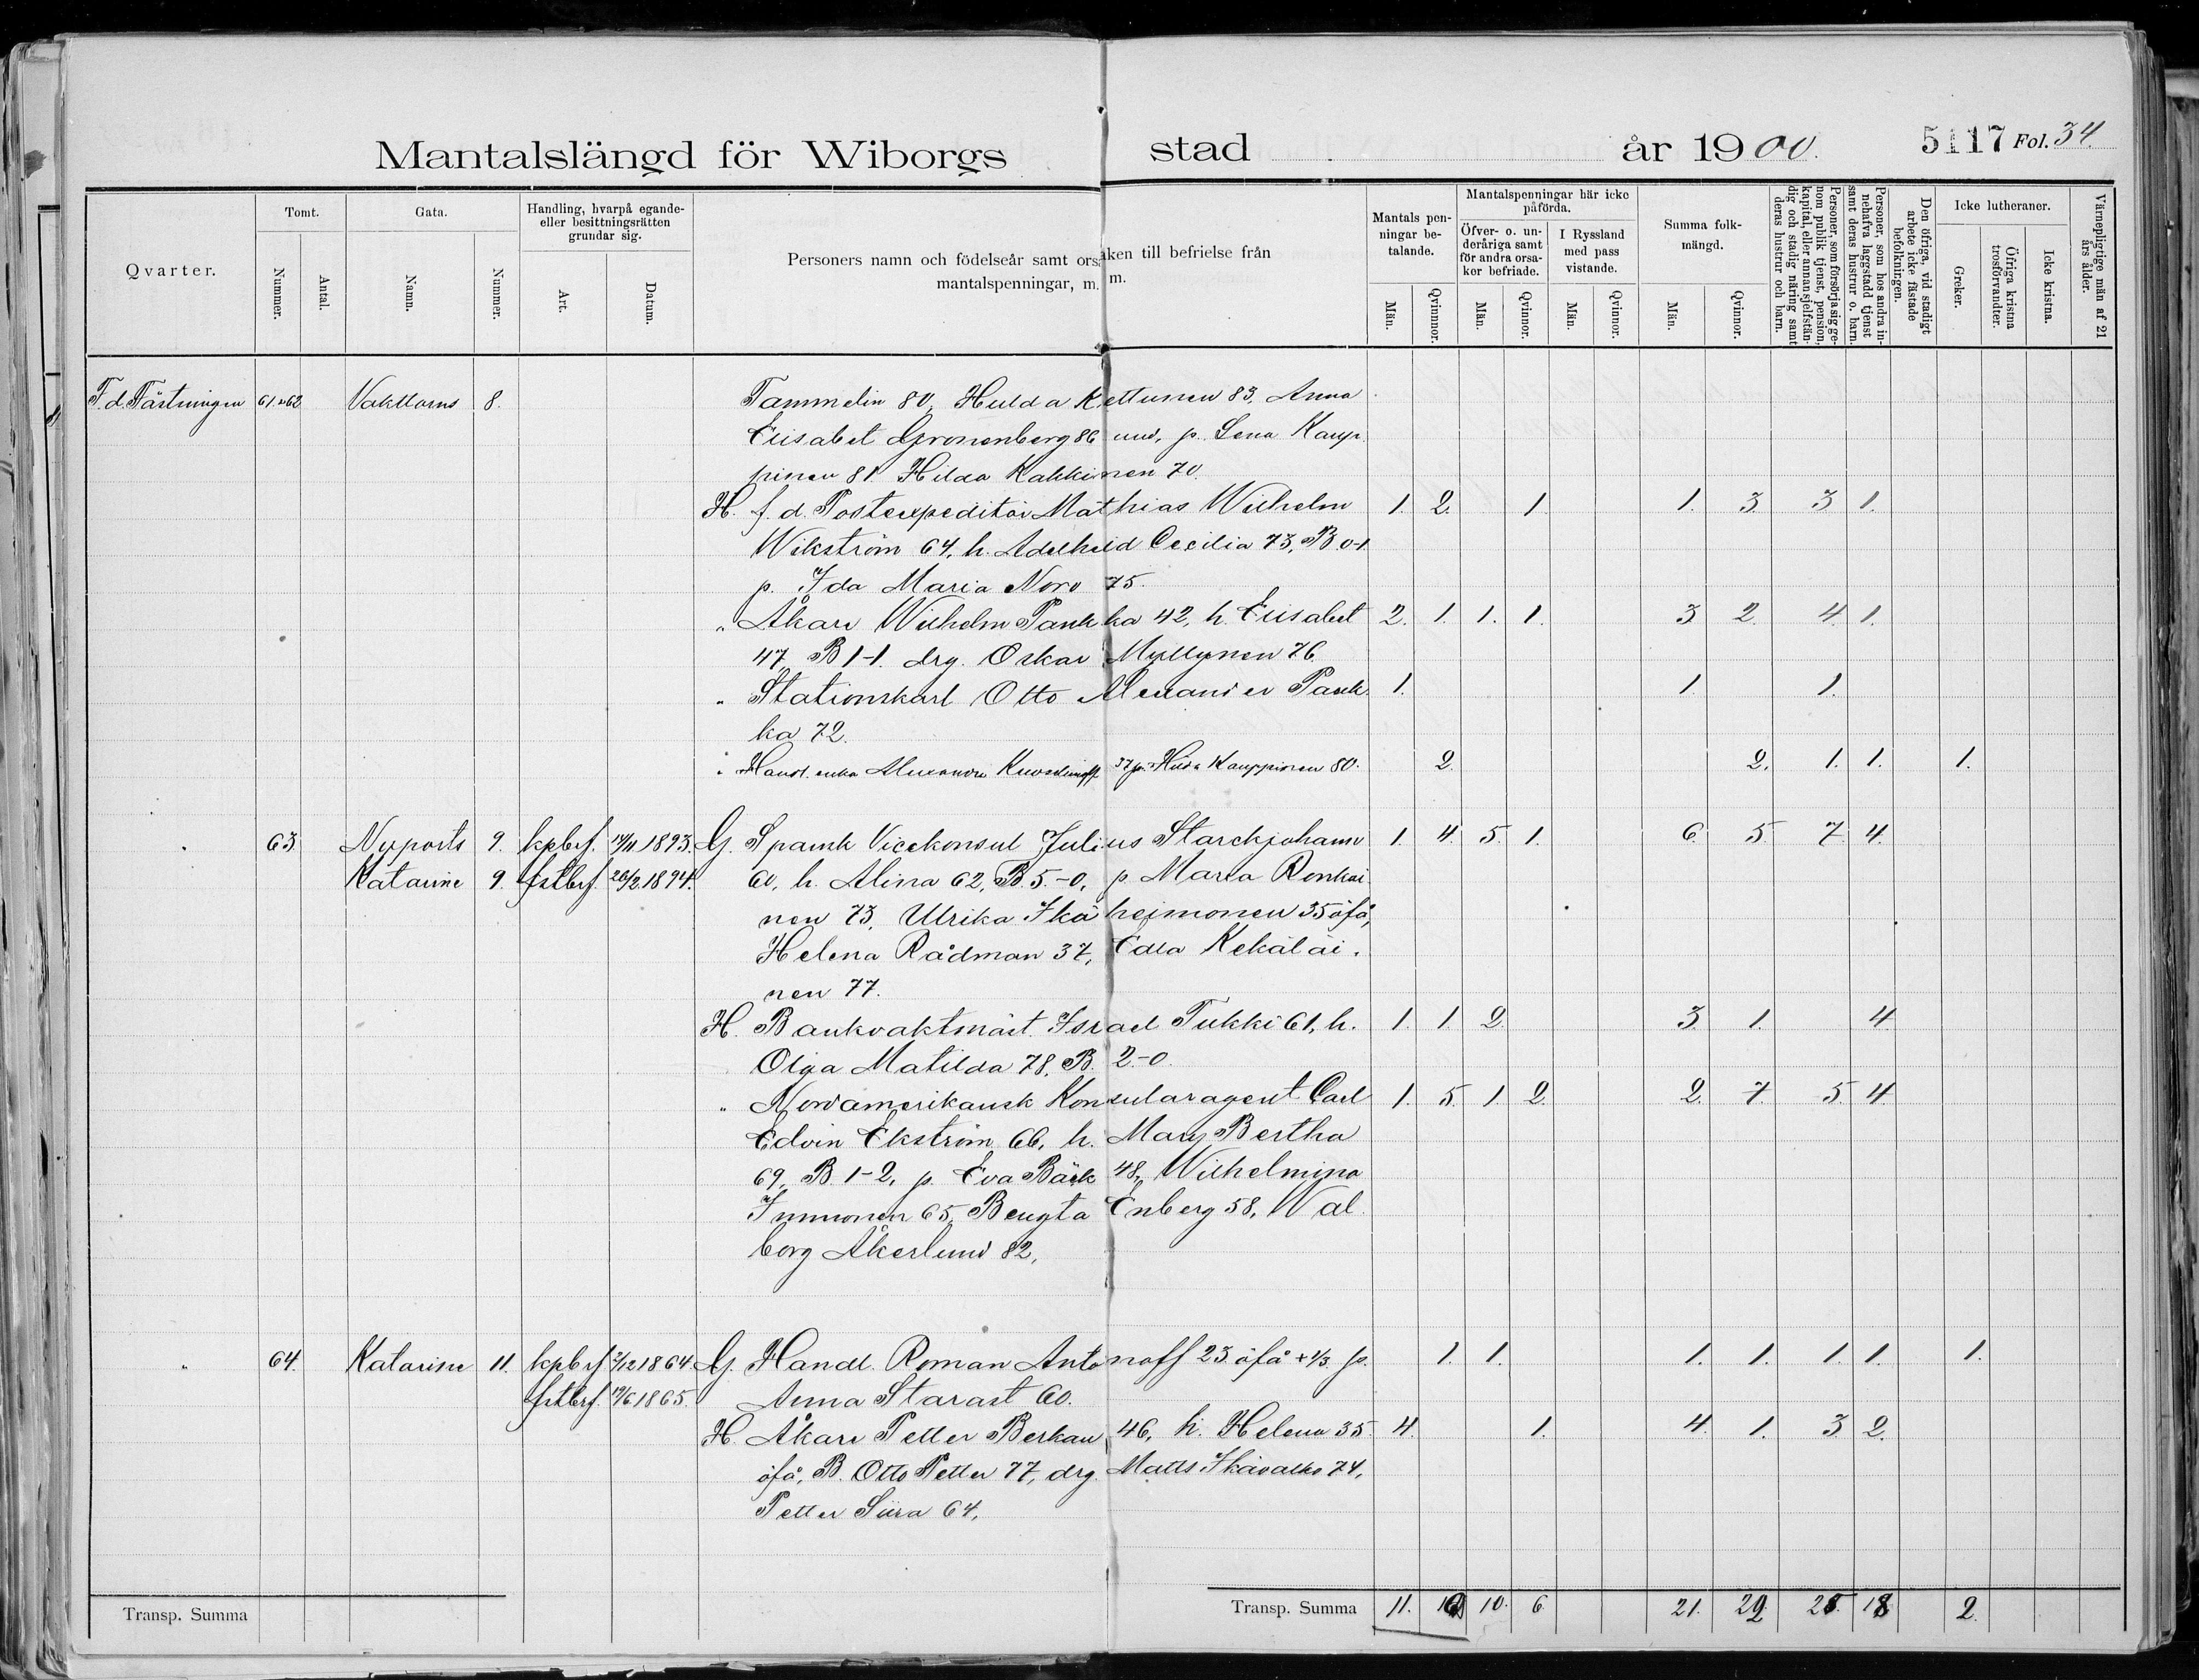 Mantalslängd för Wiborgs stad år 1900. 5117 Fol. 34
Qvarter.
Tomt.
Nummer.
Antal.
Gata.
Namn.
Nummer.
Handling, hvarpå egande- eller besittningsrätten grundar sig.
Art.
Datum.
Personers namn och födelseår samt orsaken till befrielse från
mantalspenningar, m. m.
Mantals pen- ningar be- talande.
Män.
Qvinnor.
Mantalspenningar här icke påförda.
Öfver- o. un- deråriga samt för andra orsa- ker befriade.
Män.
Qvinnor.
I Ryssland med pass vistande.
Män.
Qvinnor.
Summa folk- mängd.
Män.
Qvinnor.
Personer, som försörja sig ge- nom publik tjenst, pension, kapital, eller annan sjelfstän- dig och stadig näring samt deras hustrur och barn.
Personer, som hos andra in- nehafva laggstadd tjenst samt deras hustrur o. barn.
Den öfriga, vid stadigt arbete icke fästade befolkningen.
Icke lutheraner.
Greker.
Öfriga kristna trosförvandter.
Icke kristna.
Värnepligtige män af 21 års ålder.
F.d. Fästningen 61 o 62 Vakttorns 8. Tammelin 80, Hulda Kettunen 83, Anna
Elisabet Gronenberg 86 und, p. Lena Kaup-
pinen 81 Hilda Kakkinen 70.
H. f. d. Postexpeditör Mathias Wilhelm 1. 2. 1 1. 3. 3 1.
Wikström 64, h. Adelheid Cecilia 73, B 0-1
p. Ida Maria Noro 75.
" Åkare Wilhelm Pankka 42, h. Elisabet 2. 1. 1. 1. 3 2. 4 1.
47, B 1-1. drg. Oskar Myllynen 76.
" Stationskarl Otto Alexander Pank- 1. 1. 1.
ka 72.
" Handl. enka Alexandra 37 p. Hilda Kauppinen 80. 2. 2. 1. 1. 1.
" 63 Nyports 9. kpbrf. 14/11 1893. G. Spansk Vicekonsul Julius Starckjohann 1. 4. 5. 1. 6. 5. 7. 4.
Katarine 9. fstbrf. 26/2 1894. 60, h. Alina 62, B. 5-0, p. Maria Ronkai-
nen 73, Ulrika Ikäheimonen 35 öfå,
Helena Rådman 37, Edla Kekäläi-
nen 77.
H. Bankvaktmäst. Israel Tukki 61, h. 1. 1. 2. 3. 1. 4
Olga Matilda 78, B. 2-0.
" Nordamerikansk Konsularagent Carl 1. 5. 1. 2. 2. 7. 5. 4.
Edvin Ekström 66, h. Mary Bertha
69, B. 1-2, p. Eva Bäck 48, Wilhelmina
Immonen 65, Bengta Enberg 58, Wal-
borg Åkerlund 82,
" 64. Katarine 11. kpbrf. 2/12 1864 G. Handl. Roman Antonoff 23 öfå + 1/3. p. 1. 1. 1. 1. 1. 1. 1.
fstbrf. 19/6 1865. Anna Starast 60.
H. Åkare Petter Berkan 46, h. Helena 35 4. 1. 4. 1. 3. 2.
öfå, B. Otto Petter 77, drg. Matts Ikävalko 74,
Petter Siira 64,
Transp. Summa
Transp. Summa 11. 16 10. 6. 21. 22 25 18 2.